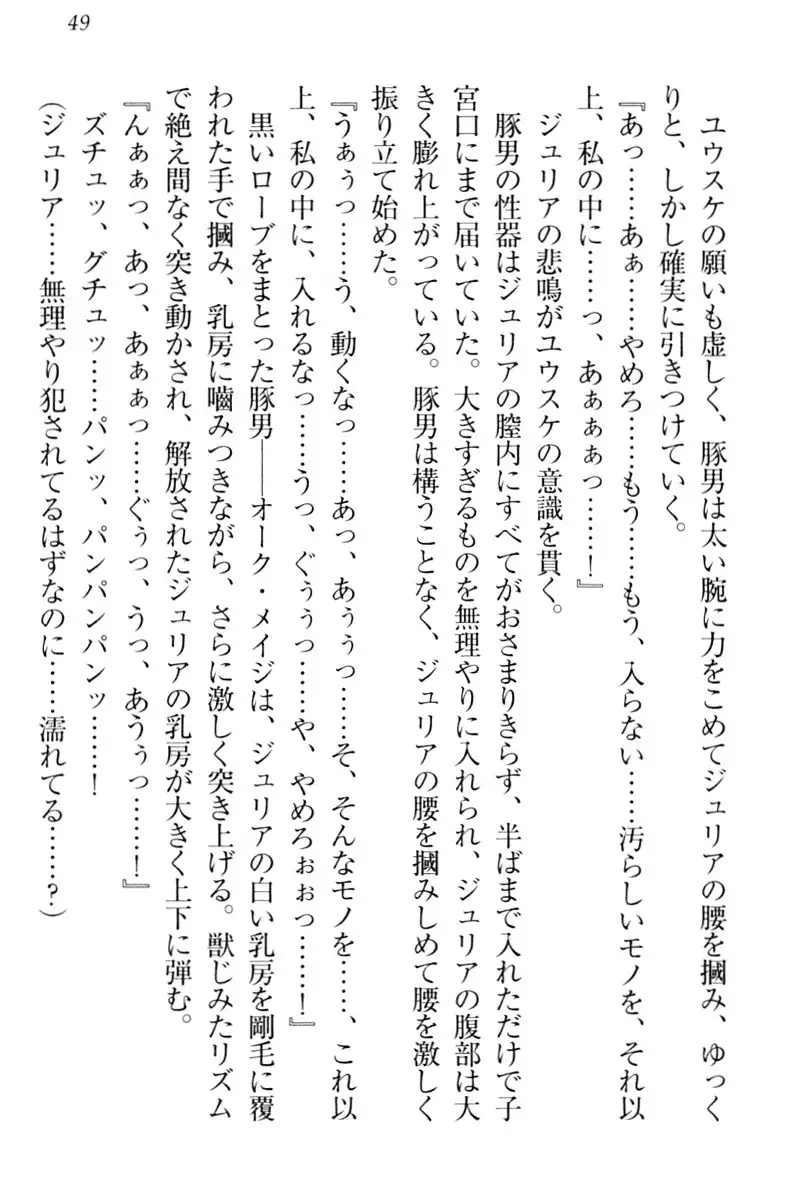 49
ユウスケの願いも虚しく、豚男は太い腕に力をこめてジュリアの腰を摑み、ゆっく
りと、しかし確実に引きつけていく。
『あっ……あぁ……やめろ……もう……もう、入らない……汚らしいモノを、それ以
上、私の中に……っ、あぁぁぁっ……!』
ジュリアの悲鳴がユウスケの意識を貫く。
豚男の性器はジュリアの膣内にすべてがおさまりきらず、半ばまで入れただけで子
宮口にまで届いていた。大きすぎるものを無理やりに入れられ、ジュリアの腹部は大
きく膨れ上がっている。豚男は構うことなく、ジュリアの腰を摑みしめて腰を激しく
振り立て始めた。
『うぁぅっ……う、動くなっ……あっ、あぅぅっ……そ、そんなモノを……、これ以
上、私の中に、入れるなっ……うっ、ぐぅぅっ……や、やめろぉぉっ……!』
黒いローブをまとった豚男――オーク・メイジは、ジュリアの白い乳房を剛毛に覆
われた手で摑み、乳房に嚙みつきながら、さらに激しく突き上げる。獣じみたリズム
で絶え間なく突き動かされ、解放されたジュリアの乳房が大きく上下に弾む。
『んぁぁっ、あっ、あぁぁっ……ぐぅっ、うっ、あうぅっ……!』
ズチュッ、グチュッ……パンッ、パンパンパンッ……!
(ジュリア……無理やり犯されてるはずなのに……濡れてる……?)